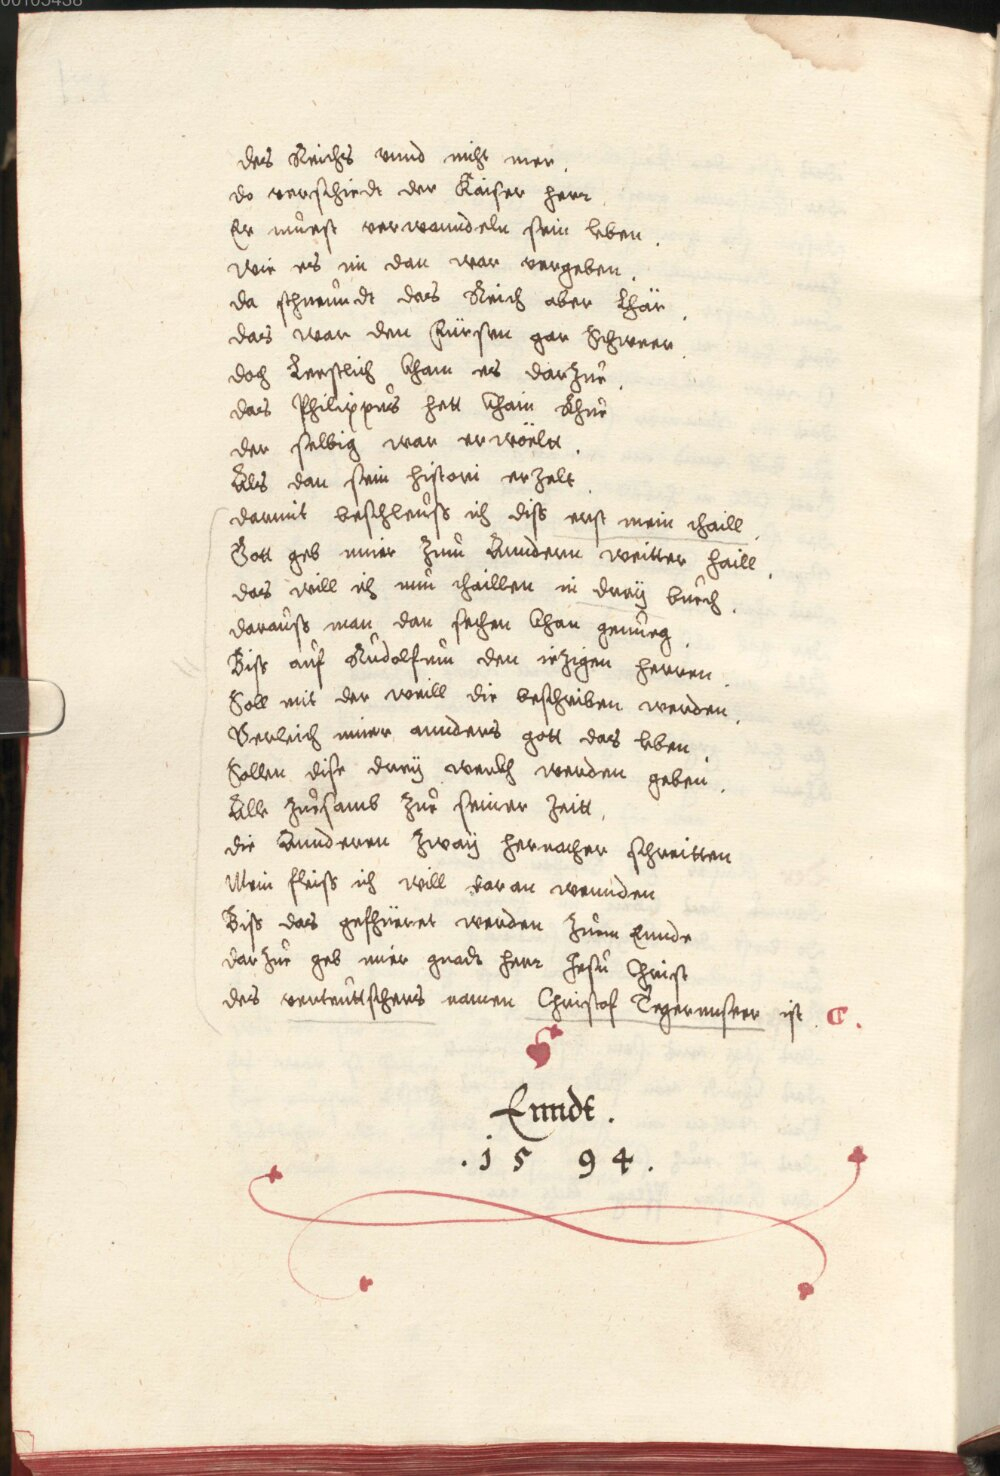 des Reichs vnnd nicht mer.
do verschiedt der Kaiser herr.
Er mŭest verwanndeln sein leben.
wie es im dan war vergeben.
da schneŭdt das Reich aber Lhär.
das war den Fürsen gar Schweer.
doch Leestlich kham es darzŭe.
das Philippŭs hett khain Rhŭe
der selbig war erwöelt.
Als dan sein histori erzelt.
darmit beschleŭss ich diss erst mein thaill.
Gott geb mier zum Anndern weitter haill.
das will ich nŭn thaillen in dreÿ bŭech.
daraŭss man dan sechen khan genŭeg.
Biss aŭf Rŭdolfŭm den iezigen herren.
Soll mit der weill die beschriben werden.
Verleich mier annders gott das leben
Sollen dise dreÿ werkh werden geben.
Alle zŭesamb zŭe seiner zeitt.
die Annderen zwaÿ hernacher schreitten
Mein fleiss ich will daran wennden
Biss das gefhüeret werden zŭem Ennde
darzŭe geb mier gnadt herr Jesŭ Christ
des verteŭttschers namen Christof Tegernseer ist. C.
Enndt.
.15 94.